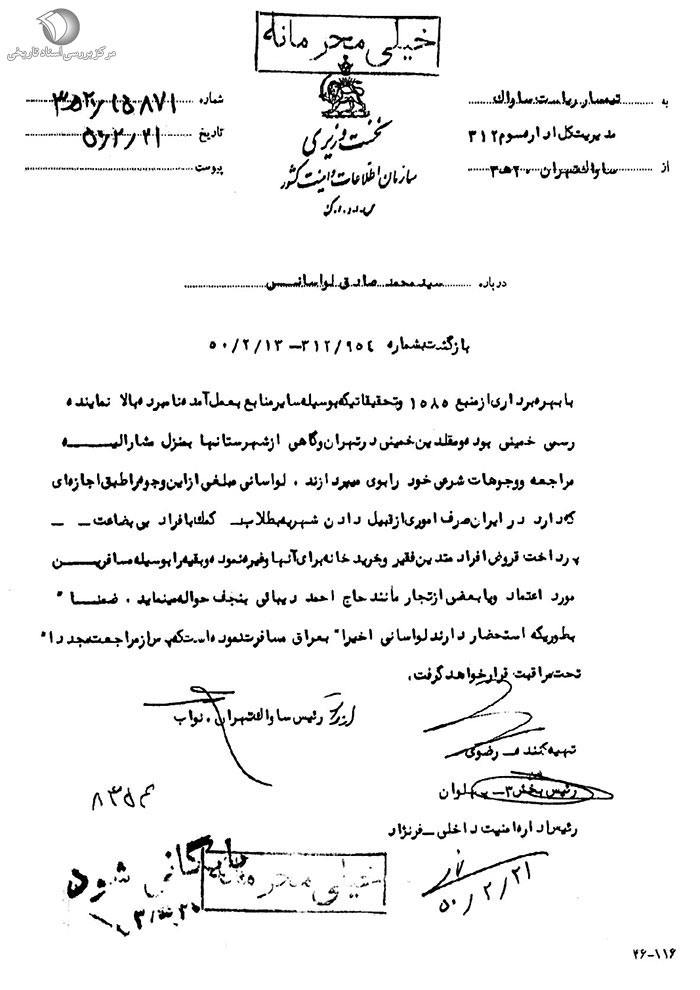 مرکز بررسی اسناد تاریخی
خیلی محرمانه
به تیمسار ریاست ساواک
مدیریت کل اداره سوم ۳۱۲
از ساواک تهران ۲۰ ه ۳
نخست وزیری
سازمان اطلاعات و امنیت کشور
شماره ۱۵۸۷۱/
تاریخ ۵۰/۲/۲۱
پیوست
درباره سید محمد صادق لواسانی
بازگشت بشماره ۳۱۲/۹۵۴ – ۵۰/۲/۱۳
با بهره برداری از منبع ۱۵۸۵ و تحقیقاتیکه بوسیله سایر منابع بعمل آمده نامبرده بالا نماینده
رسمی خمینی بوده و مقلدین خمینی در تهران و گاهی از شهرستانها بمنزل مشارالیه
مراجعه و وجوهات شرعی خود را بوی میپردازند . لواسانی مبلغی از این وجوه را طبق اجازه ای
که دارد در ایران صرف اموری از قبیل دادن شهریه بطلاب – کمک بافراد بی بضاعت –
پرداخت قروض افراد متدین فقیر و خرید خانه برای آنها و غیره نموده و بقیه را بوسیله مسافرین
مورد اعتماد و یا بعضی از تجار مانند حاج احمد دیبائی بنجف حواله مینماید . ضمنا"
بطوریکه استحضار دارند لواسانی اخیرا" بعراق مسافرت نموده است که پس از مراجعت مجددا"
تحت مراقبت قرار خواهد گرفت .
رئیس ساواک تهران . نواب
تهیه کننده – رضوی
رئیس بخش ۳ – پهلوان
رئیس اداره امنیت داخلی – فرنژاد
۵۰/۲/۲۱
بایگانی شود
خیلی محرمانه
۴۶-۱۱۶